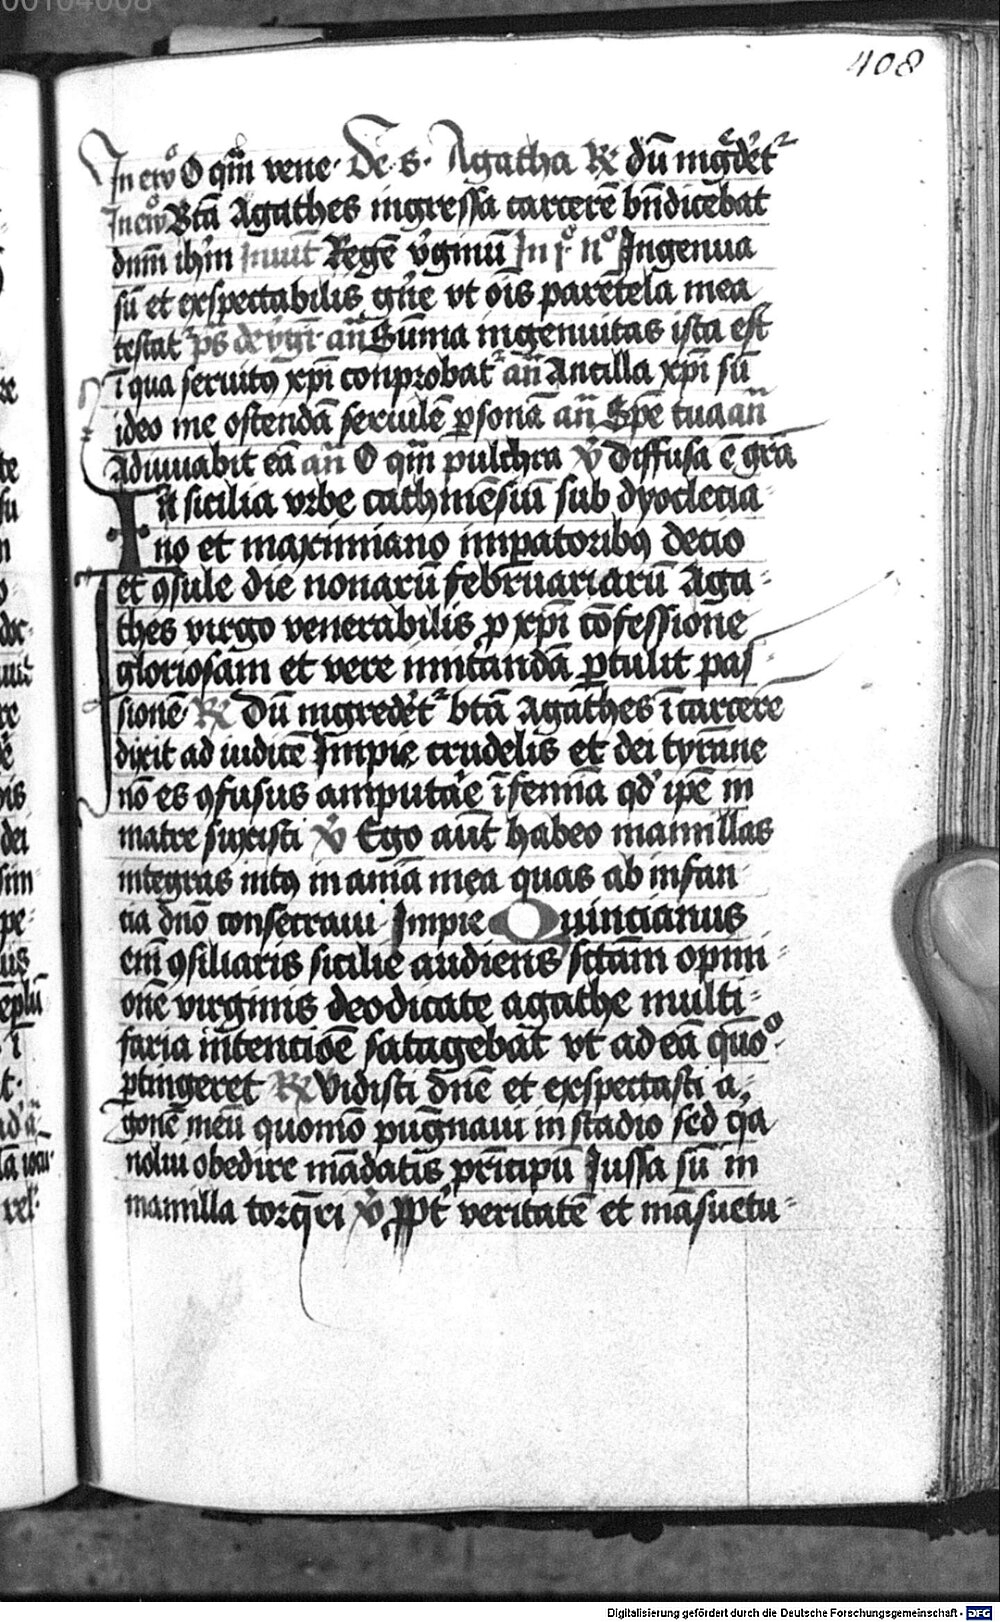 00104008
408
In evō O qm̄ vene· De· s· Agatha ℟ dū ingˢdeʳt
In ewº Btā Agathes ingressa carcerē bn̄dicebat
dnm̄ ihm̄ Inuit̄ Regē vginū In jº nº Ingenua
sū et exspectabilis gn̄e vt oīs parētela mea
testat ps̄ an̄ Sūma ingenuitas ista est
ī qua seruitꝰ xp̄i conprobat an̄ Ancilla xp̄i sū
ideo me ostendā seruilē ꝑsonā an̄ Spē tua an̄
Adiuuabit eā an̄ O qm̄ pulchra ℣ Diffusa ē gr̄a
In sicilia vrbe cathinēsiū sub dyoclecia⸗
no et maximiano imperatoribꝰ decio
et ꝯsule die nonarū februariarū Aga⸗
thes virgo venerabilis ꝓ xp̄i cōfessione
gloriosam et vere imitandā ꝑtulit pas⸗
sionē ℟ Dū ingredet btā Agathes ī carcerē
dixit ad iudicē Impie crudelis et dei tyrāne
nō es ꝯfusus amputāe ī femīa qd' ip̄e in
matre suxisti ℣ Ego aūt habeo mamillas
integras intꝰ in anīā mea quas ab infan
cia dn̄o consecraui Impie Quincianus
em̄ ꝯsiliaris sicilie audiens sctām opini⸗
onē virginis deodicate agathe multi⸗
faria intencioē satagebat vt ad eā quōº
ꝑtingeret ℟ Vidisti dn̄e et exspectasti a⸗
gonē meū quomō pugnaui in stadio sed qa
nolui obedire mādatis pn̄cipū Jussa sū in
mamilla torq̄ri ℣ Ppt' veritatē et māsuetu⸗
Digitalisierung gefördert durch die Deutsche Forschungsgemeinschaft - DFG